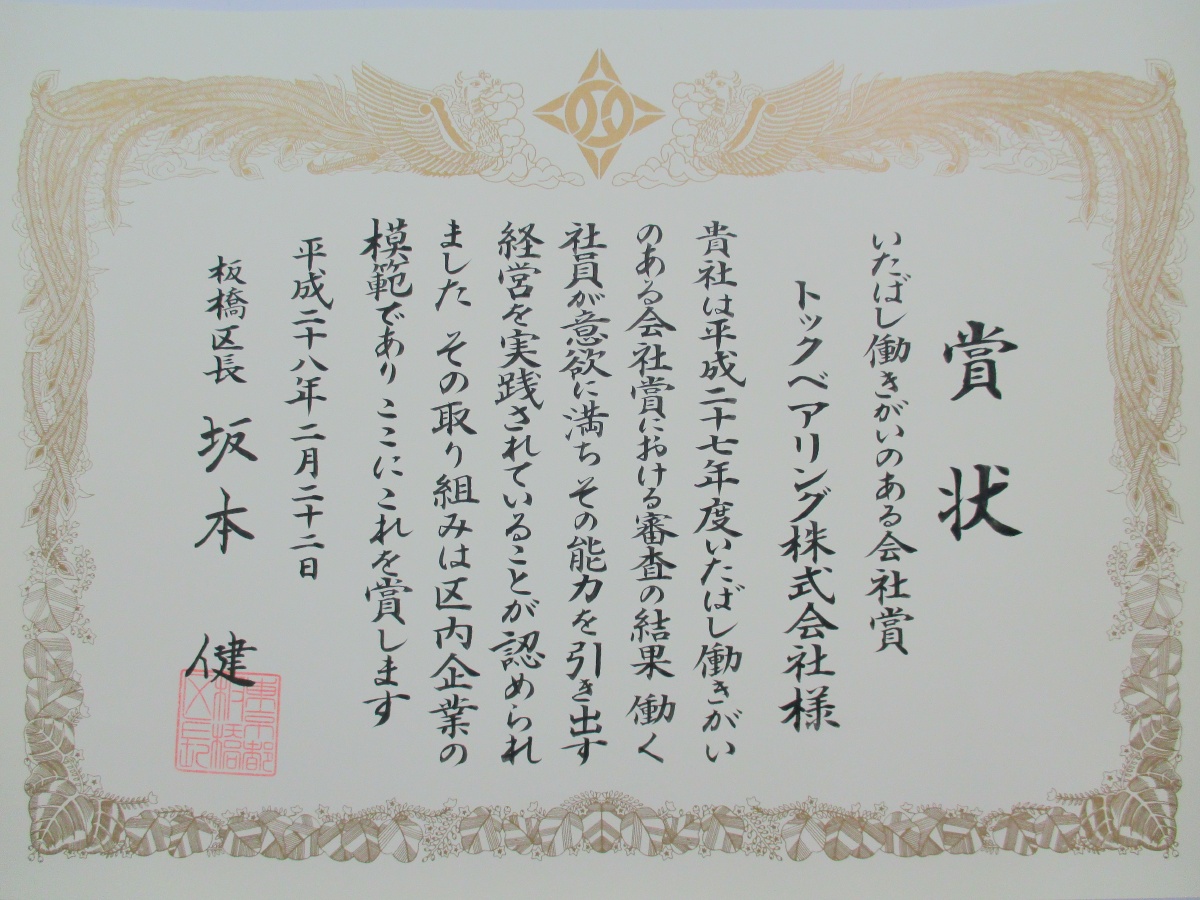 賞状
いたばし働きがいのある会社賞
トックベアリング株式会社様
貴社は平成二十七年度いたばし働きがい
のある会社賞における審査の結果 働く
社員が意欲に満ち その能力を引き出す
経営を実践されていることが認められ
ました その取り組みは区内企業の
模範であり ここにこれを賞します
平成二十八年二月二十二日
板橋区長 坂本 健
東京都
板橋
区長